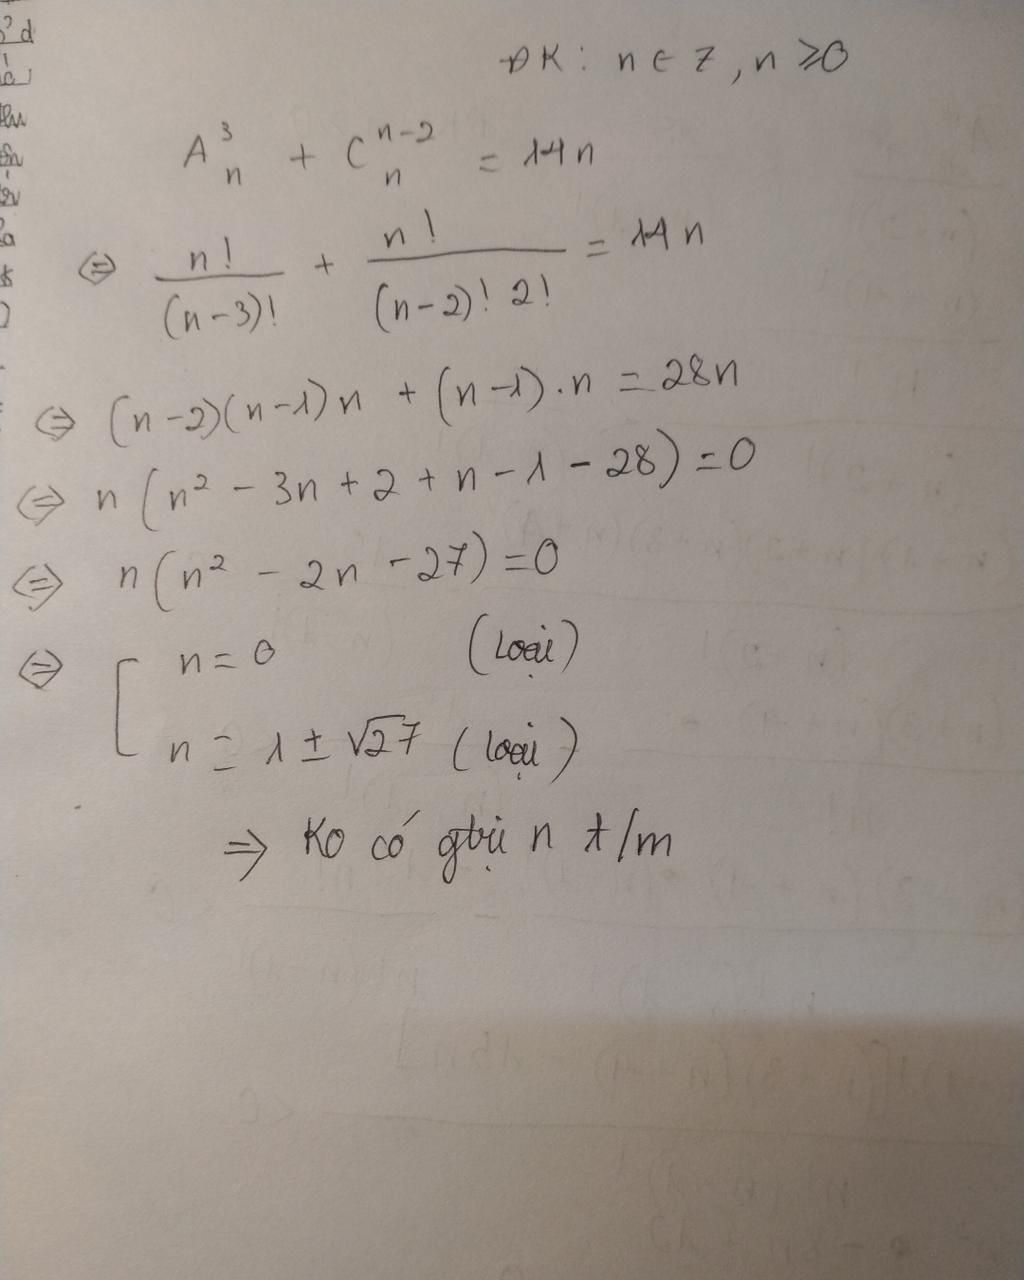 ĐK: n ∈ Z, n ≥ 0
A³ₙ + Cₙⁿ⁻² = 14n
⇔ n!/(n-3)! + n!/((n-2)! 2!) = 14n
⇔ (n-2)(n-1)n + (n-1).n = 28n
⇔ n(n² - 3n + 2 + n - 1 - 28) = 0
⇔ n(n² - 2n - 27) = 0
⇔ [ n = 0 (loại)
n = 1 ± √27 (loại)
⇒ Ko có gtrị n t/m